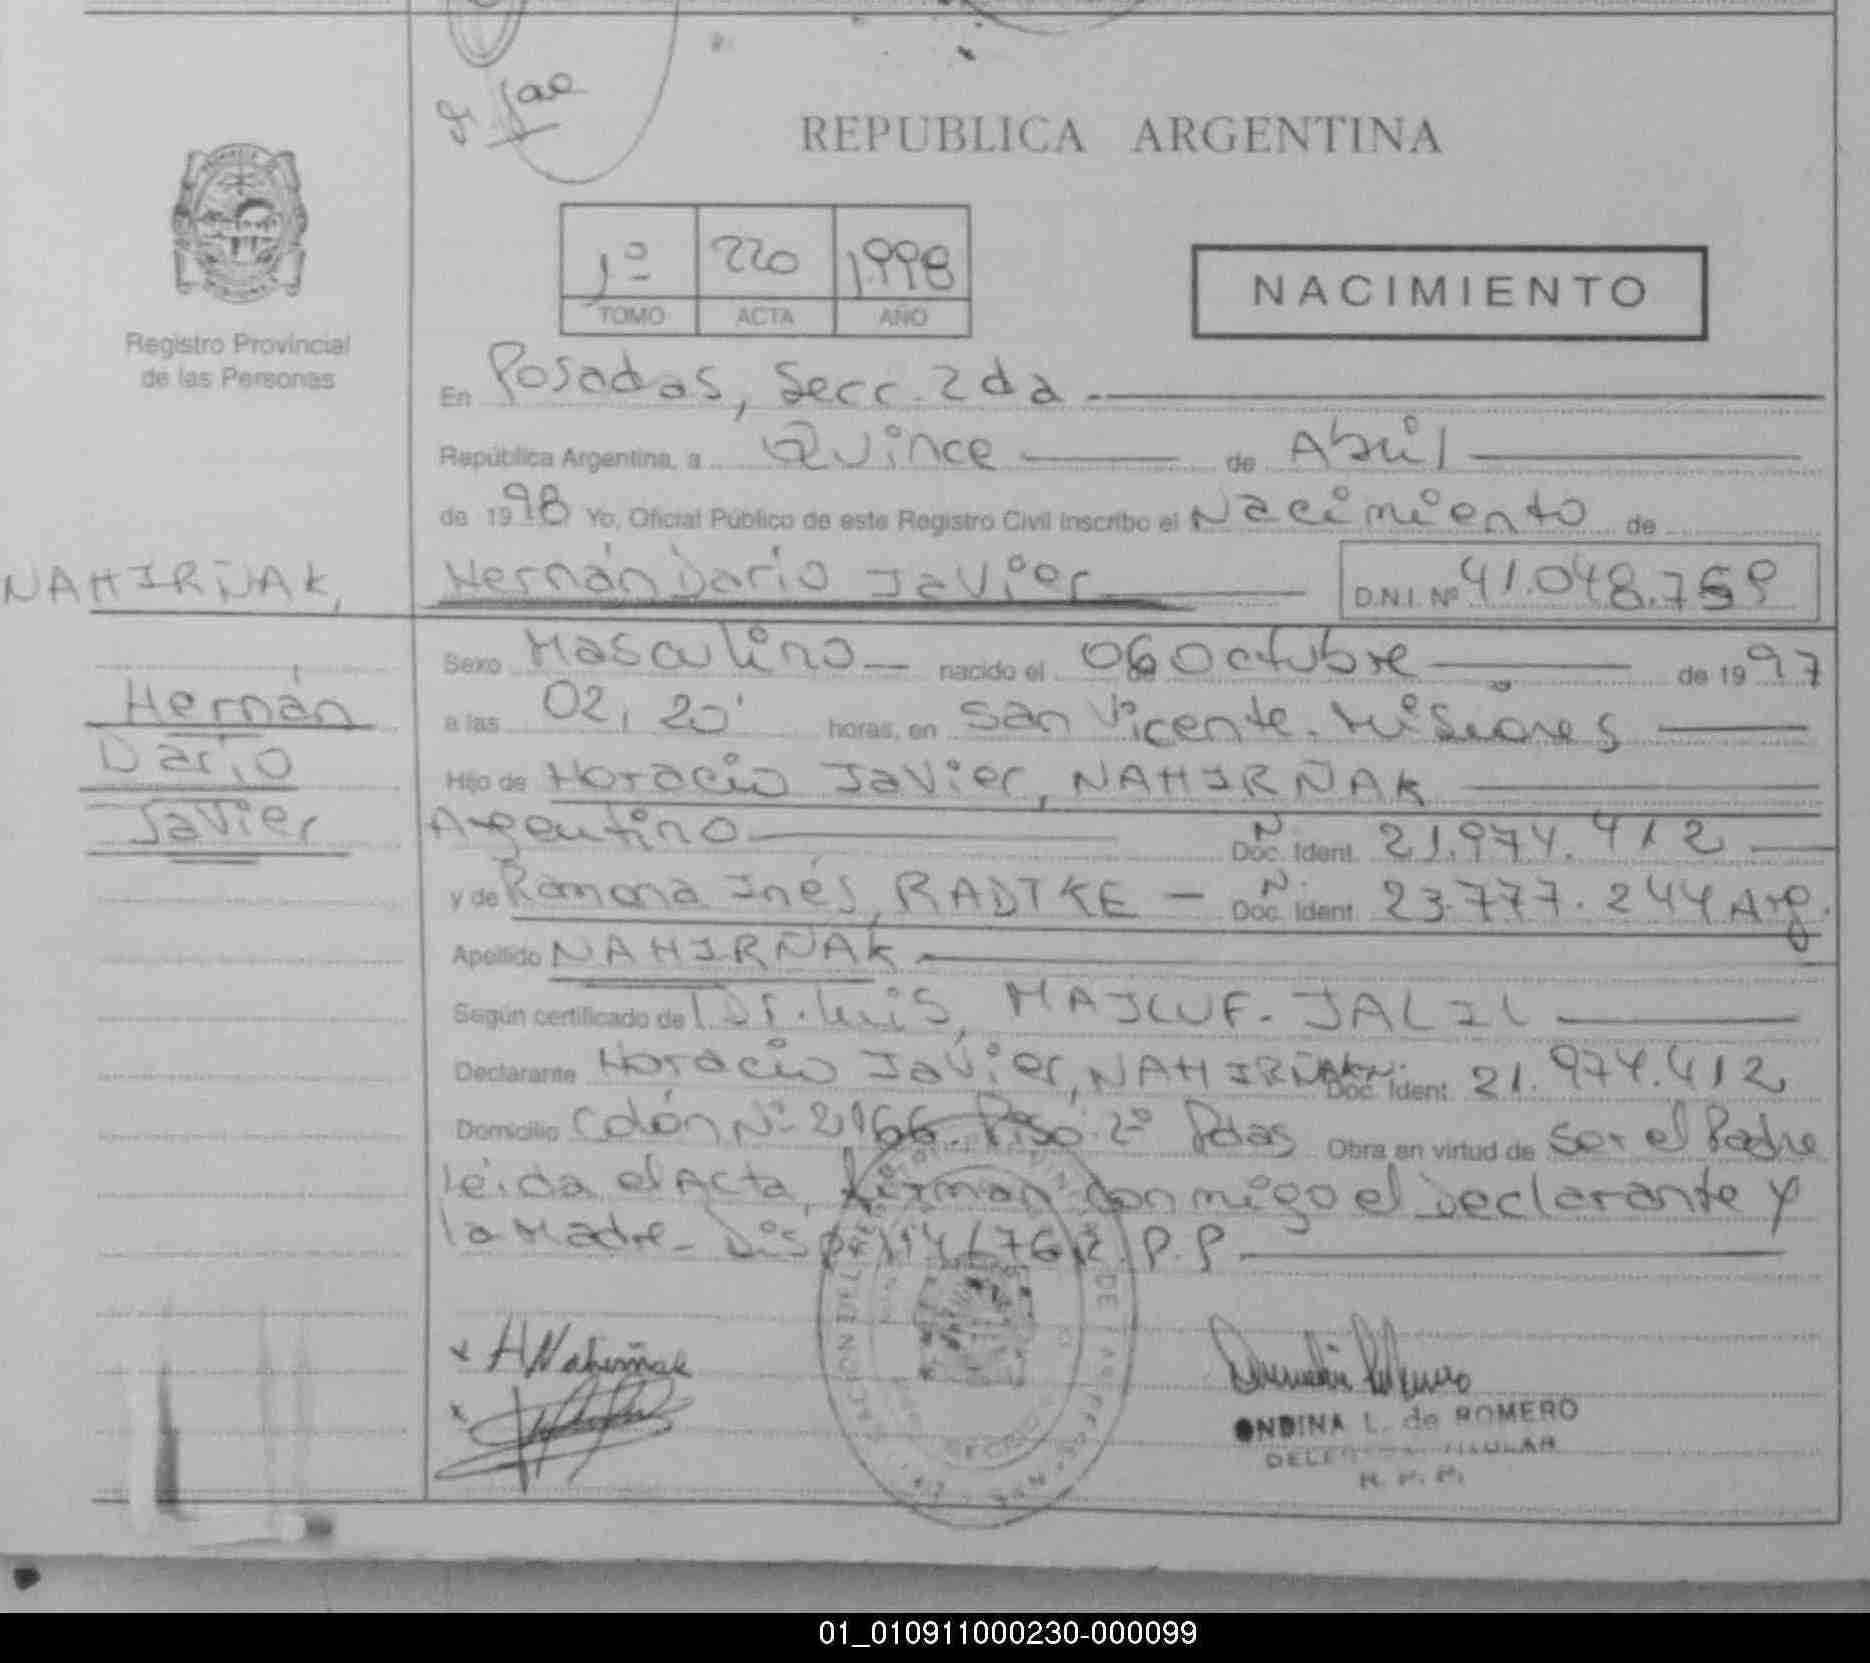 REPUBLICA ARGENTINA
1º 220 1998
TOMO ACTA AÑO
NACIMIENTO
Registro Provincial
de las Personas
En Posadas, Secc. 2da
República Argentina, a Quince de Abril
de 1998 Yo, Oficial Público de este Registro Civil inscribo el Nacimiento de
NAHIRÑAK, Hernán Darío Javier D.N.I. Nº 41.048.759
Hernán
Darío
Javier
Sexo Masculino nacido el 06 de Octubre de 1997
a las 02,20' horas, en San Vicente. Misiones
Hijo de Horacio Javier, NAHIRÑAK
Argentino Doc. Ident. N 21.974.412
y de Ramona Inés, RADTKE - Doc. Ident. N 23.777.244 Arg.
Apellido NAHIRÑAK
Según certificado de Dr. Luis, MAJLUF- JALIL
Declarante Horacio Javier, NAHIRÑAK Doc. Ident. N 21.974.412
Domicilio Colón Nº 2166. Piso 2º Pdas Obra en virtud de ser el Padre
leída el Acta, firman conmigo el Declarante y
la Madre- P.P
H Nahirñak
ONDINA L. de ROMERO
01_010911000230-000099